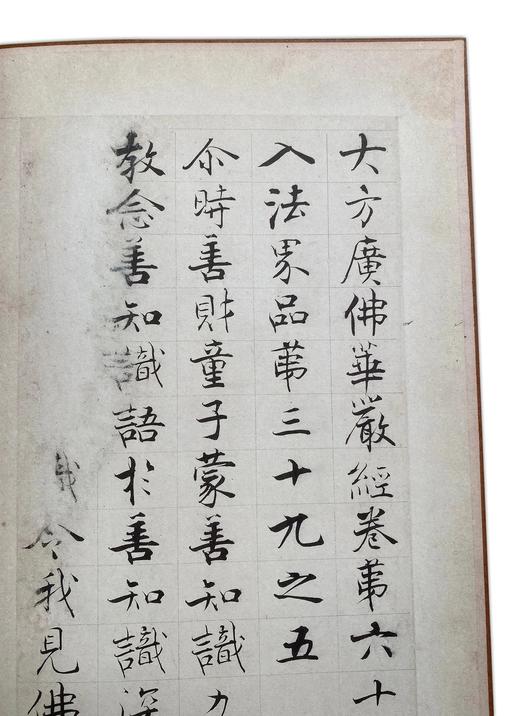 大方廣佛華嚴經卷苐六十
入法界品苐三十九之五
尒時善財童子蒙善知識力
教念善知識語於善知識深
我令我見佛